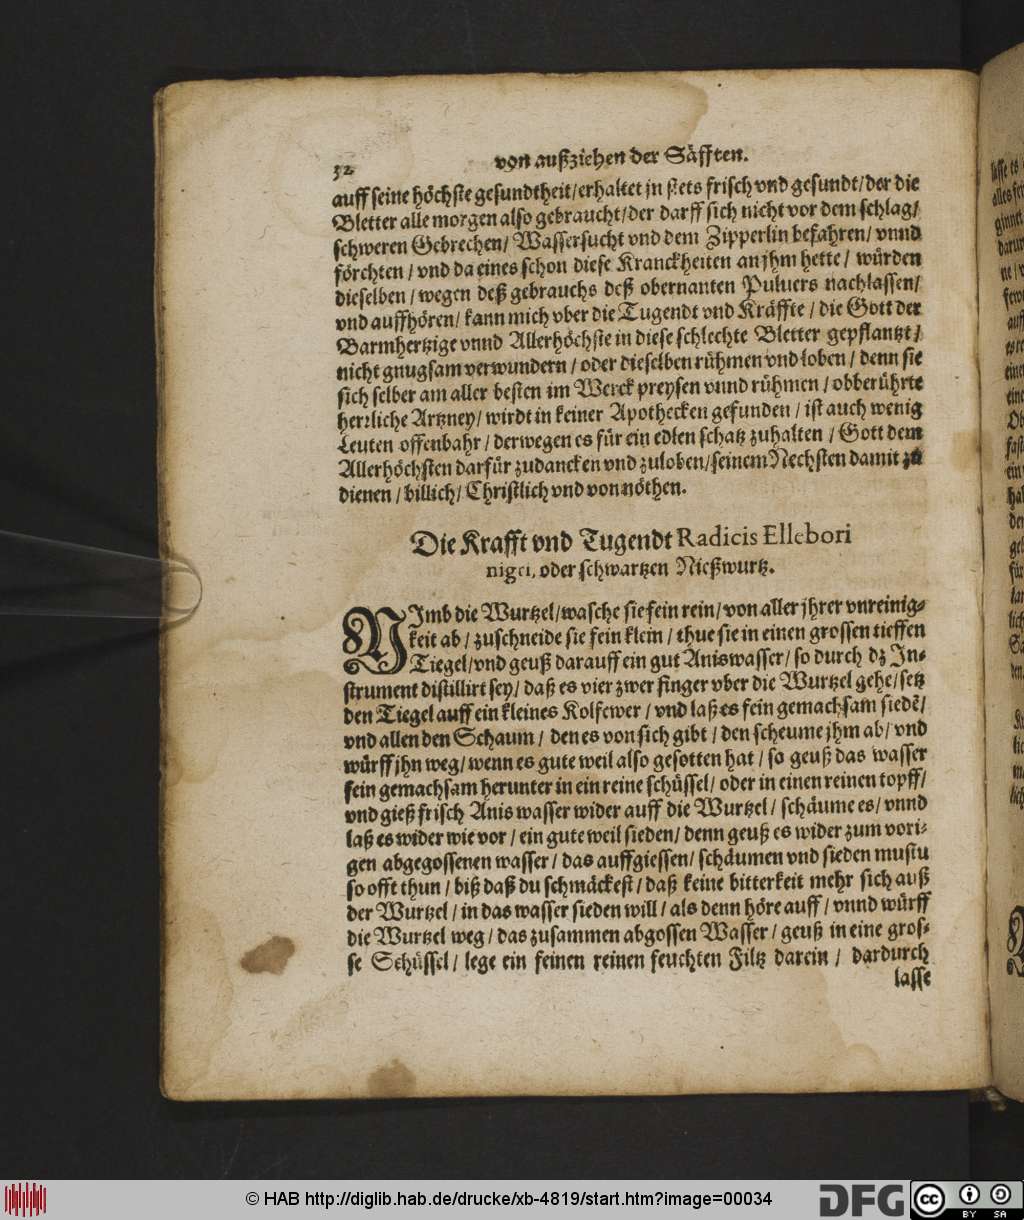 32
von außziehen der Säfften.
auff seine höchste gesundtheit/erhaltet jn stets frisch vnd gesundt/der die
Bletter alle morgen also gebraucht/der darff sich nicht vor dem schlag/
schweren Gebrechen/ Wassersucht vnd dem Zipperlin befahren/ vnnd
förchten / vnd da eines schon diese Kranckheiten an jhm hette / würden
dieselben / wegen deß gebrauchs deß obernanten Puluers nachlassen/
vnd auffhören/ kann mich vber die Tugendt vnd Kräffte / die Gott der
Barmhertzige vnnd Allerhöchste in diese schlechte Bletter gepflantzt /
nicht gnugsam verwundern / oder dieselben rühmen vnd loben / denn sie
sich selber am aller besten im Werck preysen vnnd rühmen / obberührte
herrliche Artzney / wirdt in keiner Apothecken gefunden / ist auch wenig
Leuten offenbahr / derwegen es für ein edlen schatz zuhalten / Gott dem
Allerhöchsten darfür zudancken vnd zuloben/seinem Nechsten damit zu
dienen / billich/ Christlich vnd von nöthen.
Die Krafft vnd Tugendt Radicis Ellebori
nigri, oder schwartzen Nießwurtz.
NImb die Wurtzel/wasche sie fein rein/von aller jhrer vnreinig-
keit ab / zuschneide sie fein klein / thue sie in einen grossen tieffen
Tiegel/vnd geuß darauff ein gut Aniswasser/ so durch dz In-
strument distillirt sey/ daß es vier zwer finger vber die Wurtzel gehe/setz
den Tiegel auff ein kleines Kolfewer / vnd laß es fein gemachsam siedē/
vnd allen den Schaum / den es von sich gibt / den scheume jhm ab/ vnd
würff jhn weg/ wenn es gute weil also gesotten hat / so geuß das wasser
fein gemachsam herunter in ein reine schüssel/ oder in einen reinen topff/
vnd gieß frisch Anis wasser wider auff die Wurtzel / schäume es/ vnnd
laß es wider wie vor / ein gute weil sieden/ denn geuß es wider zum vori-
gen abgegossenen wasser / das auffgiessen/ schäumen vnd sieden mustu
so offt thun / biß daß du schmäckest / daß keine bitterkeit mehr sich auß
der Wurtzel / in das wasser sieden will / als denn höre auff / vnnd würff
die Wurtzel weg / das zusammen abgossen Wasser / geuß in eine gros-
se Schüssel / lege ein feinen reinen feuchten Filtz darein / dardurch
lasse
© HAB http://diglib.hab.de/drucke/xb-4819/start.htm?image=00034
DFG
cc
BY SA